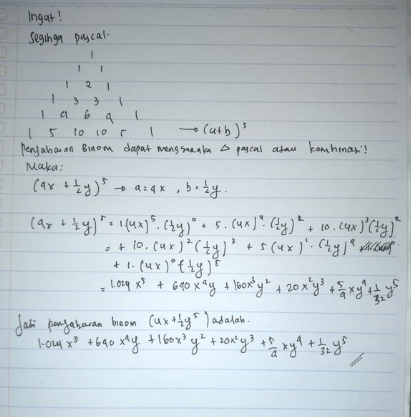 Ingat!
Segitiga pascal.
1
1 1
1 2 1
1 3 3 1
1 4 6 4 1
1 5 10 10 5 1 → (a+b)⁵
Penjabaran Binom dapat menggunaka △ pascal atau kombinasi!
Maka:
(4x + ½y)⁵ → a=4x , b=½y.
(4x + ½y)⁵ = 1.(4x)⁵ . (½y)⁰ + 5. (4x)⁴ . (½y)¹ + 10. (4x)³ (½y)²
= + 10. (4x)² (½y)³ + 5 (4x)¹ . (½y)⁴
+ 1. (4x)⁰ (½y)⁵
= 1.024 x⁵ + 640 x⁴y + 160x³y² + 20x²y³ + 5/4 xy⁴ + 1/32 y⁵
Jadi penjabaran binom (4x + ½y⁵) adalah.
1.024 x⁵ + 640 x⁴y + 160x³ y² + 20x² y³ + 5/4 xy⁴ + 1/32 y⁵